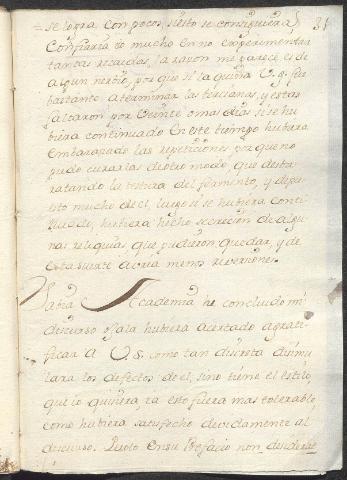 se logra con pocos, si esto se consiguiera
31
Confiaria io mucho en no experimentar
tantas recaidas, la razon me parece es de
algun nervio, por que si la quina V.g. fue
bastante a terminar las tercianas, y estas
faltaron por veinte o mas dias si se hu
biera continuado en este tiempo hubiera
embarazado las repeticiones, por que no
pudo curarlas de otro modo, que desba
ratando la textura del fermento, y depu
esto mucho de el, luego si se hubiera conti
nuado, hubiera hecho secrecion de algu
nas reliquias, que pudieron quedar, y de
esta suerte avria menos reversiones.
Sabia Academia he concluido mi
discurso ojala hubiera acertado a grati-
ficar a V.S. como tan discreta disimu
lara los defectos de el, sino tiene el estilo,
que io quisiera, ia esto fuera mas tolerable
como hubiera satisfecho devidamente al
discurso. Puoto en su Prefacio non desidera